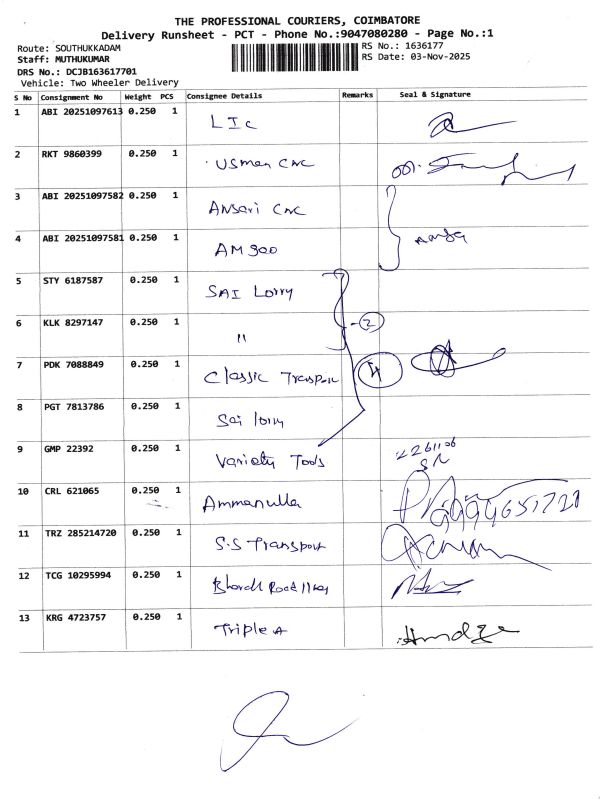 THE PROFESSIONAL COURIERS, COIMBATORE
Delivery Runsheet - PCT - Phone No.:9047080280 - Page No.:1
Route: SOUTHUKKADAM
RS No.: 1636177
Staff: MUTHUKUMAR
RS Date: 03-Nov-2025
DRS No.: DCJB163617701
Vehicle: Two Wheeler Delivery
S No Consignment No Weight PCS Consignee Details Remarks Seal & Signature
1 ABI 20251097613 0.250 1 LIC
2 RKT 9860399 0.250 1 Usman CNC
3 ABI 20251097582 0.250 1 Ansari CNC
4 ABI 20251097581 0.250 1 AM 900
5 STY 6187587 0.250 1 SAI Lorry
6 KLK 8297147 0.250 1 " 2
7 PDK 7088849 0.250 1 Classic Transport 4
8 PGT 7813786 0.250 1 Sai lorry
9 GMP 22392 0.250 1 Variety Tools
10 CRL 621065 0.250 1 Ammanulla
11 TRZ 285214720 0.250 1 S.S Transport
12 TCG 10295994 0.250 1
13 KRG 4723757 0.250 1 Triple A